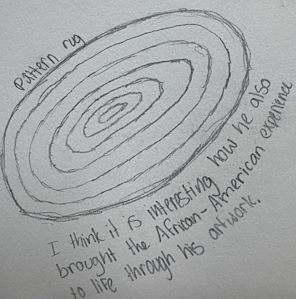 pattern rug
I think it is interesting how he also
brought the African-American experience
to life through his artwork.